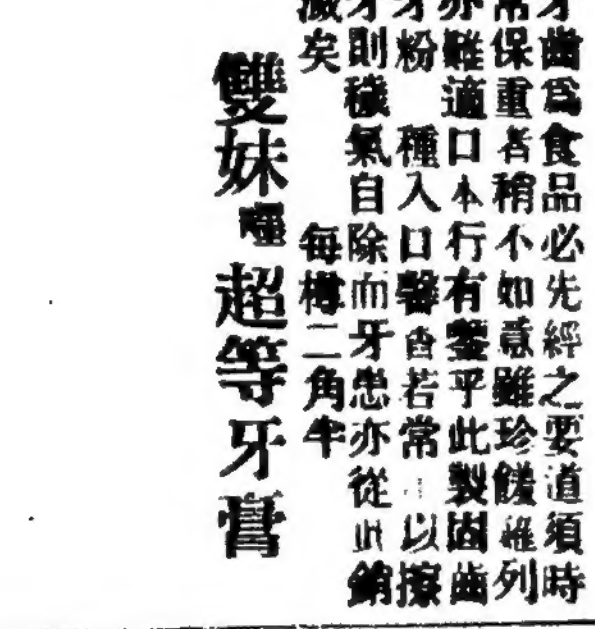 牙齒爲食品必先經之要道須時
常保重者稍不如意雖珍饈雜列
亦難適口本行有鑒乎此製固齒
牙粉 種入口馨香若常 以擦
牙則穢氣自除而牙患亦從此銷
滅矣 每樽二角半
雙妹嚜超等牙膏